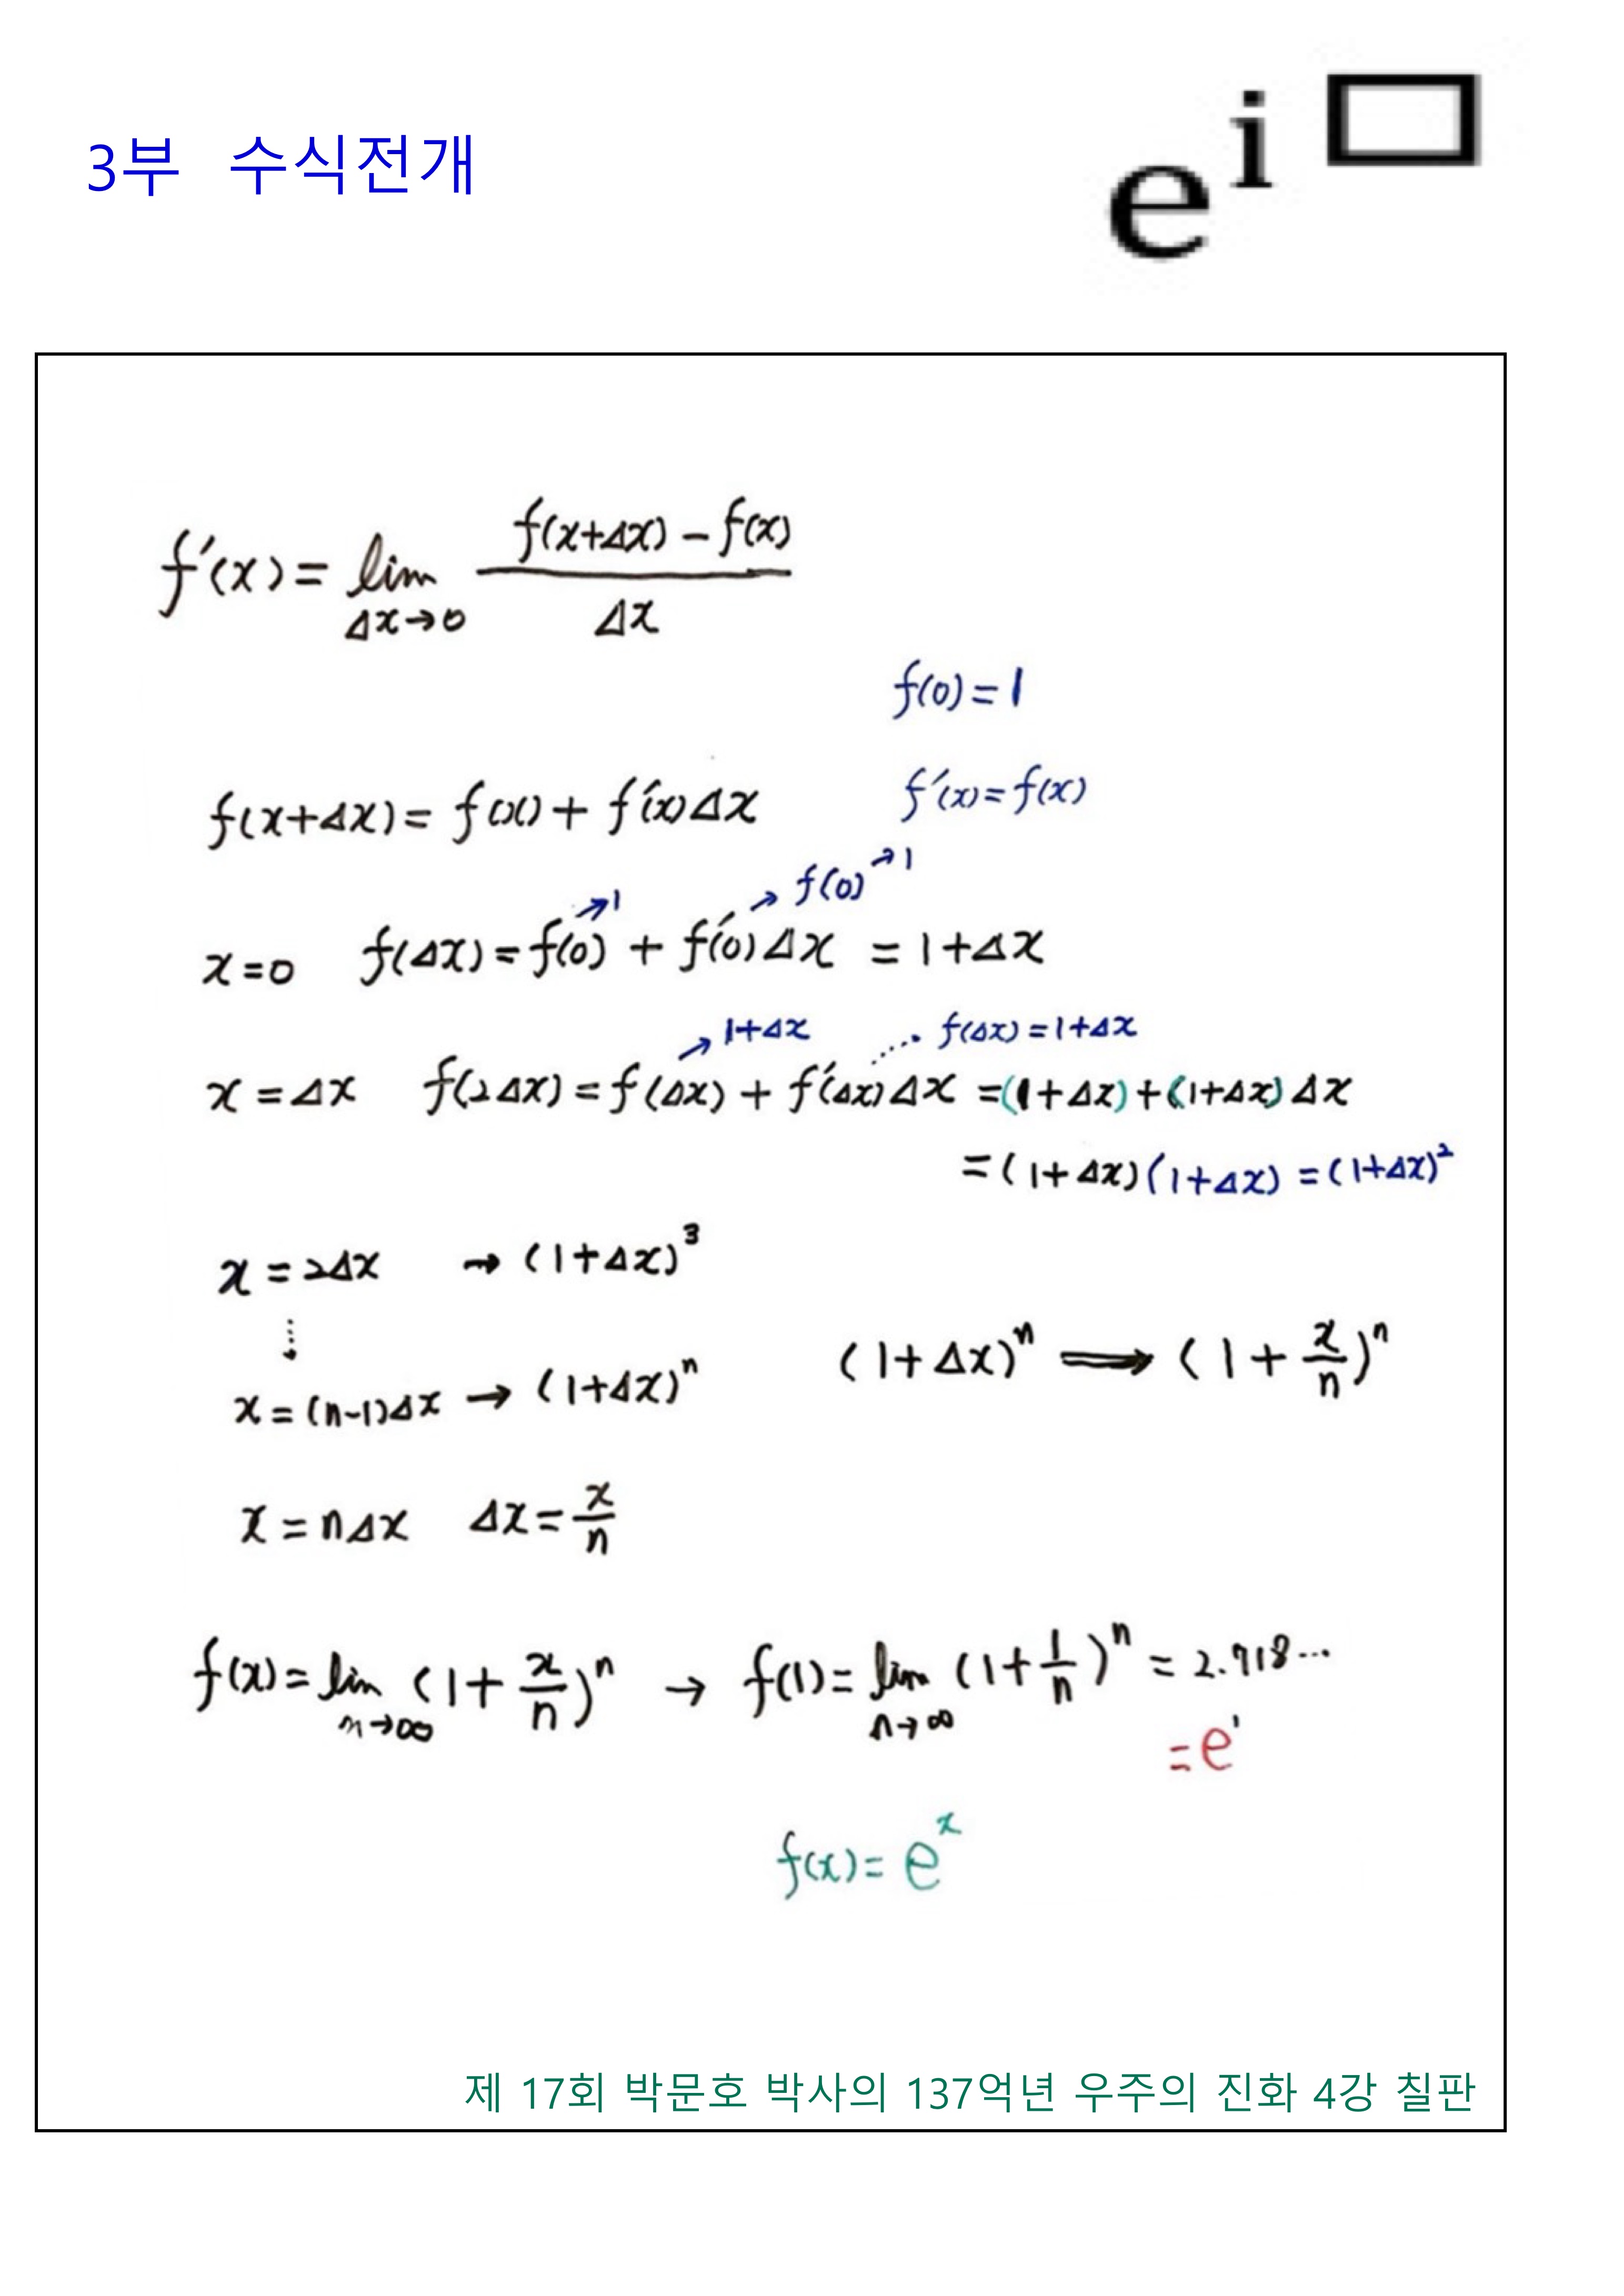 3부 수식전개
e^i □
f′(x) = lim Δx→0 (f(x+Δx) − f(x)) / Δx
f(0) = 1
f(x+Δx) = f(x) + f′(x)Δx    f′(x) = f(x)
→1    → f(0) →1
x = 0    f(Δx) = f(0) + f′(0)Δx = 1+Δx
→ 1+Δx    f(Δx) = 1+Δx
x = Δx    f(2Δx) = f(Δx) + f′(Δx)Δx = (1+Δx) + (1+Δx)Δx
= (1+Δx)(1+Δx) = (1+Δx)²
x = 2Δx → (1+Δx)³
(1+Δx)ⁿ ⟹ (1 + x/n)ⁿ
x = (n−1)Δx → (1+Δx)ⁿ
x = nΔx    Δx = x/n
f(x) = lim n→∞ (1 + x/n)ⁿ → f(1) = lim n→∞ (1 + 1/n)ⁿ = 2.718···
= e¹
f(x) = eˣ
제 17회 박문호 박사의 137억년 우주의 진화 4강 칠판